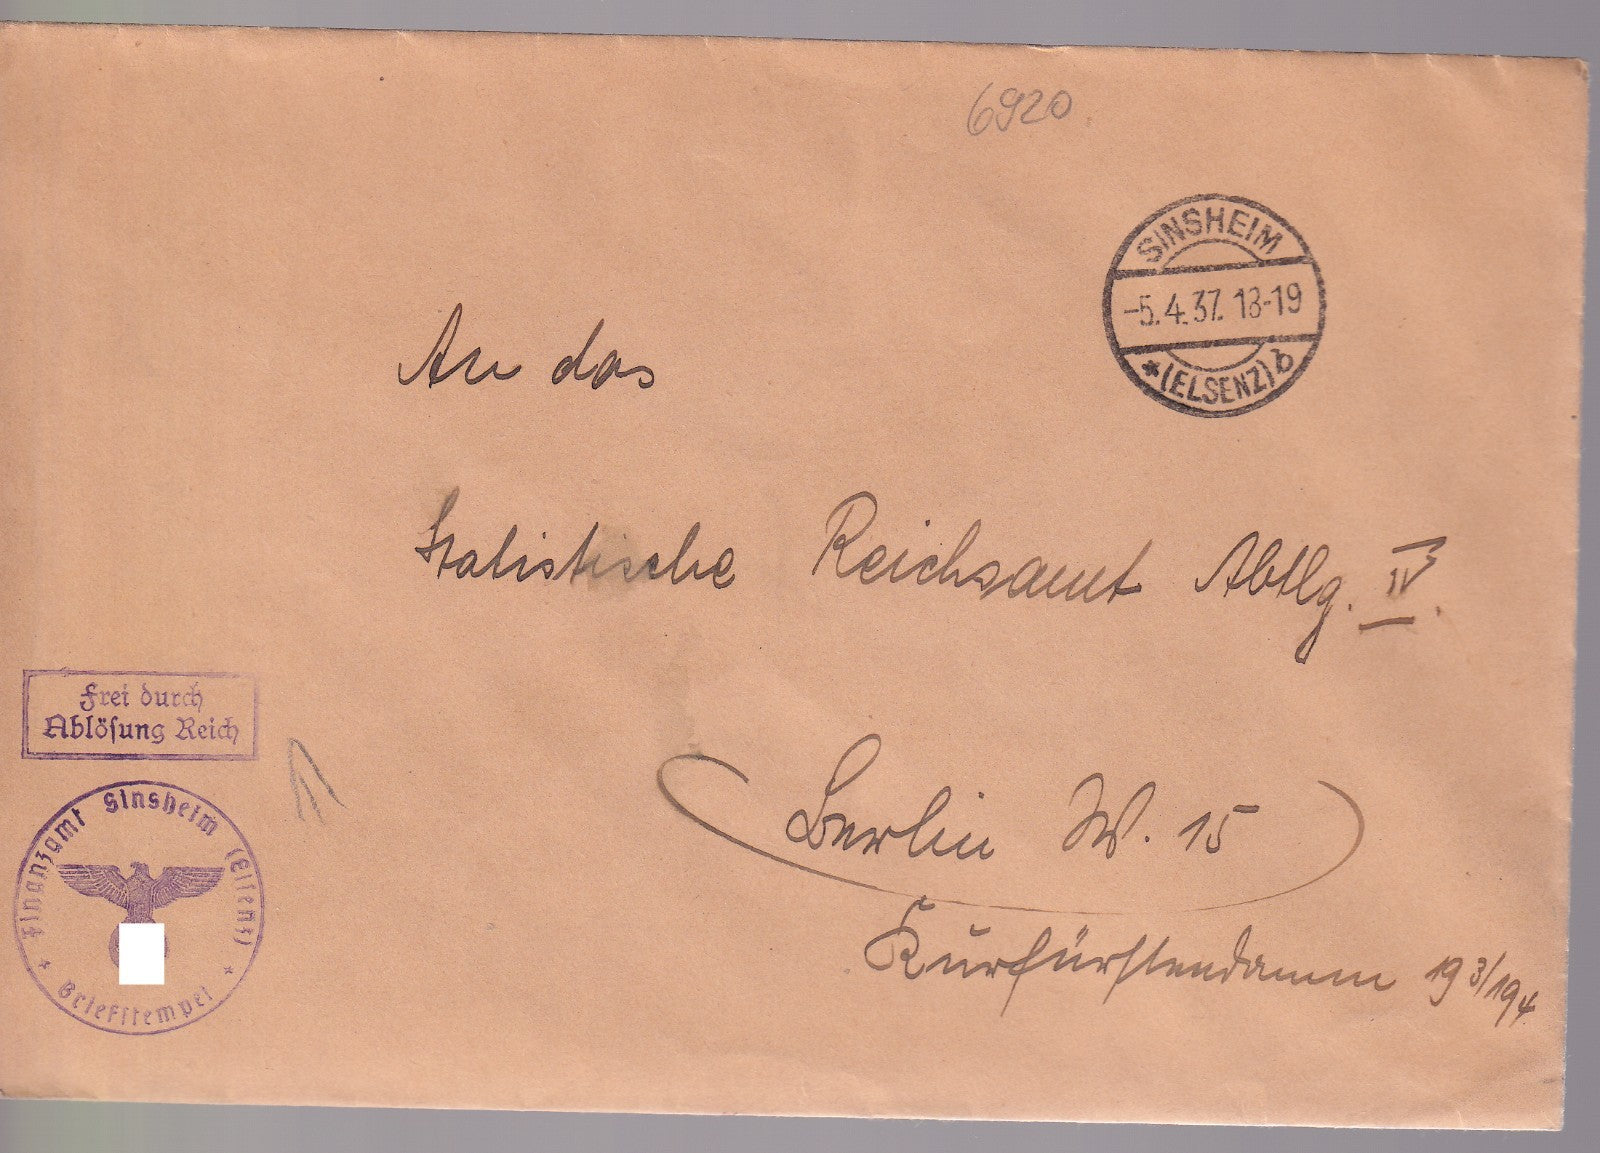 6920
SINSHEIM
-5.4.37. 18-19
* (ELSENZ) b
An das
Statistische Reichsamt Abtlg. IV.
Frei durch
Ablösung Reich
Finanzamt Sinsheim (Elsenz)
* Briefstempel *
Berlin W. 15
Kurfürstendamm 193/194